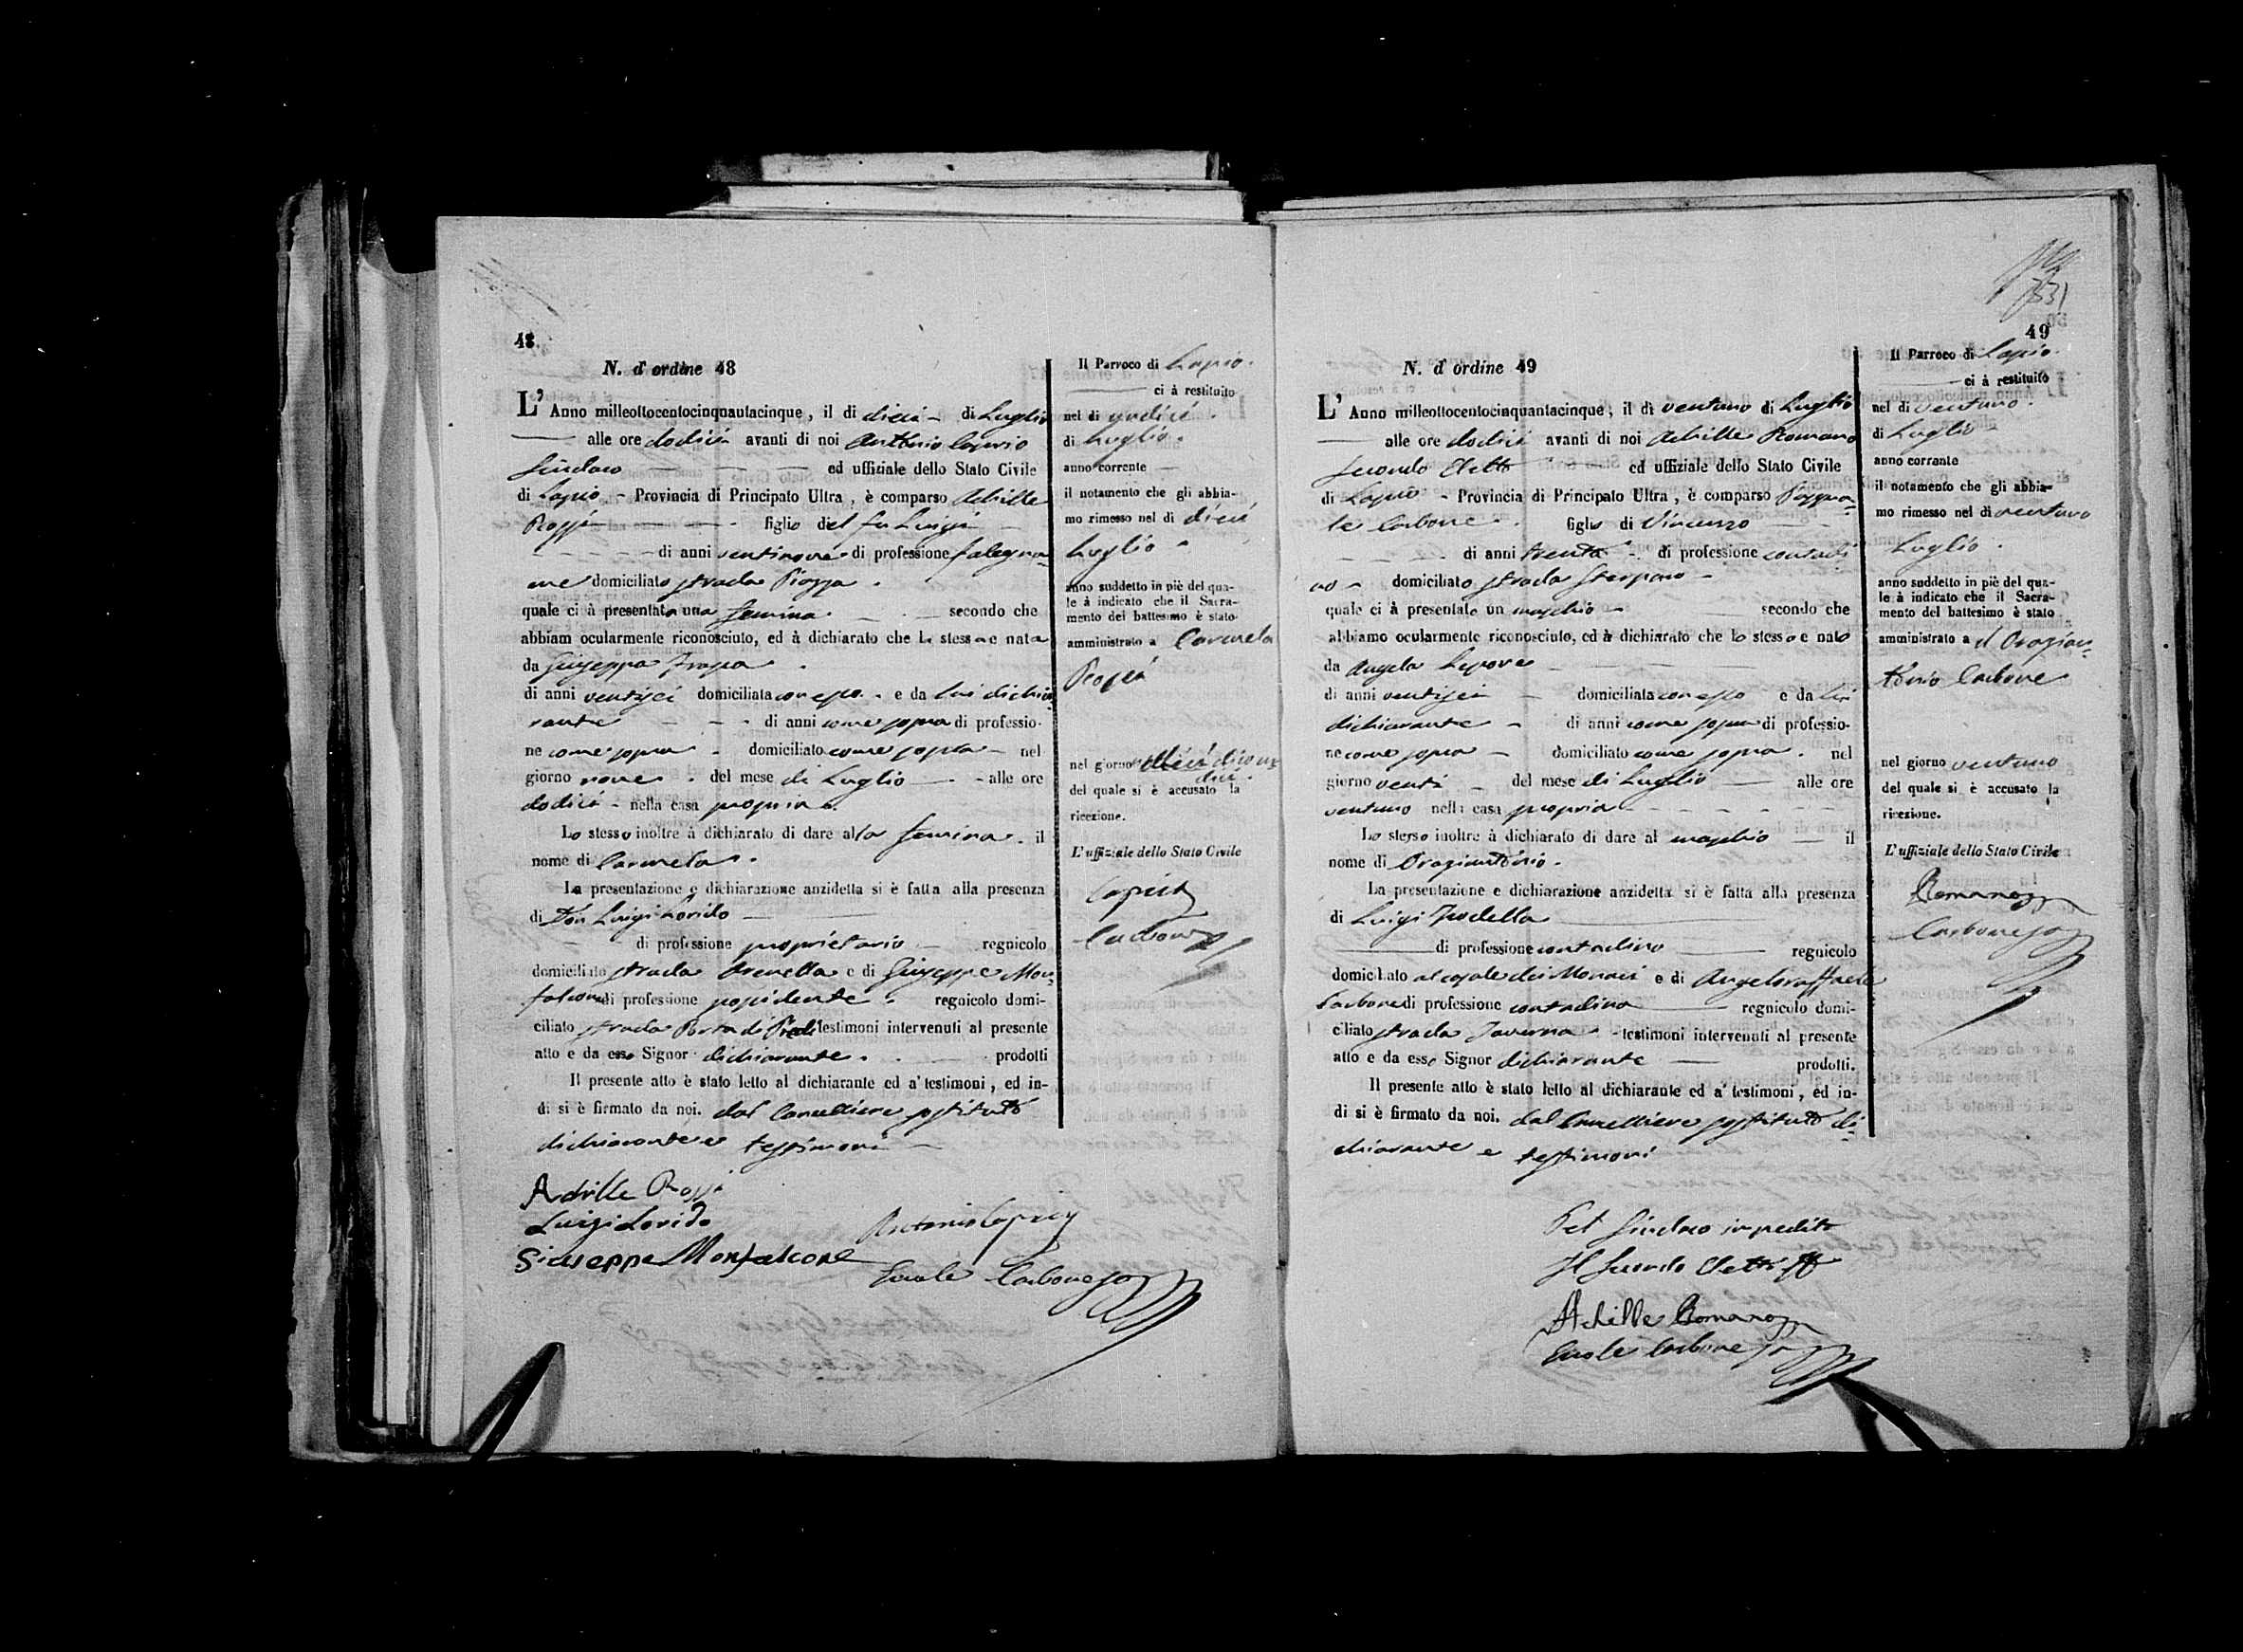 48.
N. d'ordine 48
L'Anno milleottocentocinquantacinque, il di dieci di Luglio
alle ore dodici avanti di noi Antonio Caprio
Sindaco ed uffiziale dello Stato Civile
di Lapio - Provincia di Principato Ultra, è comparso Achille
Rossi figlio del fu Luigi
di anni ventinove di professione falegna=
me domiciliato strada Piazza.
quale ci à presentata una femina secondo che
abbiam ocularmente riconosciuto, ed à dichiarato che la stessa e nata
da Giuseppa
di anni ventisei domiciliata con esso e da lui dichia=
rante di anni come sopra di professio-
ne come sopra domiciliato come sopra nel
giorno nove del mese di Luglio alle ore
dodici nella casa propria
Lo stesso inoltre à dichiarato di dare alla femina il
nome di Carmela.
La presentazione e dichiarazione anzidetta si è fatta alla presenza
di Don Luigi Lorido
di professione proprietario regnicolo
domiciliato strada Arenella e di Giuseppe Mon=
falcone di professione possidente regnicolo domi-
ciliato strada Porta di testimoni intervenuti al presente
atto e da esso Signor dichiarante. prodotti
Il presente atto è stato letto al dichiarante ed a' testimoni, ed in-
di si è firmato da noi. dal Cancelliere sostituto
dichiarante e testimoni
Achille Rossi
Luigi Lorido
Giuseppe Monfalcone
Antonio Caprio
Ercole Carbone
Il Parroco di Lapio.
ci à restituito
nel di undici
di Luglio.
anno corrente
il notamento che gli abbia-
mo rimesso nel di dieci
Luglio
anno suddetto in piè del qua-
le à indicato che il Sacra-
mento del battesimo è stato
amministrato a Carmela
Rossi
nel giorno
del quale si è accusato la
ricezione.
L'uffiziale dello Stato Civile
Caprio
Carbone
49
N. d'ordine 49
L'Anno milleottocentocinquantacinque, il di ventuno di Luglio
alle ore dodici avanti di noi Achille Romano
Secondo Eletto ed uffiziale dello Stato Civile
di Lapio - Provincia di Principato Ultra, è comparso Pasqua=
le Carbone figlio di Vincenzo
di anni trenta di professione contadi
no domiciliato strada
quale ci à presentato un maschio secondo che
abbiamo ocularmente riconosciuto, ed à dichiarato che lo stesso e nato
da Angela Lepore
di anni ventisei domiciliata con esso e da lui
dichiarante di anni come sopra di professio-
ne come sopra domiciliato come sopra nel
giorno venti del mese di Luglio alle ore
ventuno nella casa propria
Lo stesso inoltre à dichiarato di dare al maschio il
nome di Oraziantonio.
La presentazione e dichiarazione anzidetta si è fatta alla presenza
di Luigi
di professione contadino regnicolo
domiciliato al casale dei Monaci e di Angeloraffaele
Carbone di professione contadino regnicolo domi-
ciliato strada Taverna testimoni intervenuti al presente
atto e da esso Signor dichiarante prodotti.
Il presente atto è stato letto al dichiarante ed a' testimoni, ed in-
di si è firmato da noi. dal Cancelliere sostituto di=
chiarante e testimoni
Pel Sindaco impedito
Il Secondo Eletto
Achille Romano
Ercole Carbone
Il Parroco di Lapio.
ci à restituito
nel di ventuno
di Luglio
anno corrente
il notamento che gli abbia-
mo rimesso nel di ventuno
Luglio.
anno suddetto in piè del qua-
le à indicato che il Sacra-
mento del battesimo è stato
amministrato a d Orazian=
tonio Carbone
nel giorno ventuno
del quale si è accusato la
ricezione.
L'uffiziale dello Stato Civile
Romano
Carbone